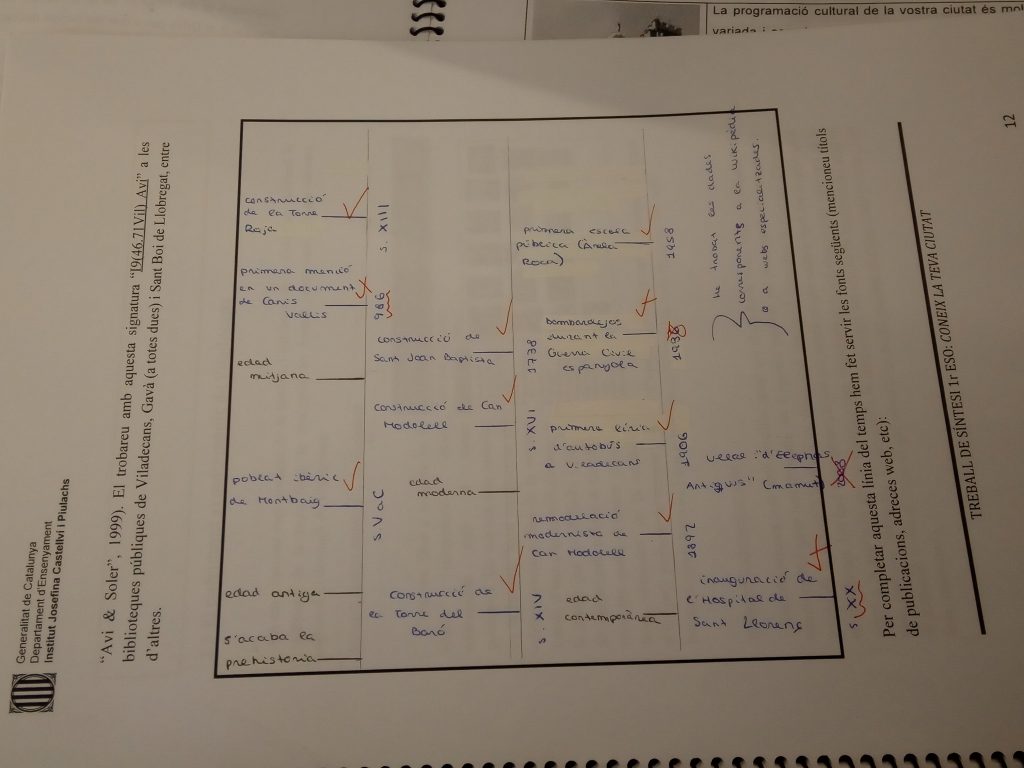 Generalitat de Catalunya
Departament d'Ensenyament
Institut Josefina Castellví i Piulachs
"Avi & Soler", 1999). El trobareu amb aquesta signatura "I9(46.71Vil) Avi" a les
biblioteques públiques de Viladecans, Gavà (a totes dues) i Sant Boi de Llobregat, entre
d'altres.
s'acaba la
prehistoria
edad antiga
poblat ibèric
de Montbaig
s V aC
edad
mitjana
primera menció
en un document
de Canis
Vallis
986
construcció
de la Torre
Roja
s. XIII
construcció de
la Torre del
Baró
s. XIV
edad
moderna
construcció de Can
Modolell
s. XVI
construcció de
Sant Joan Baptista
1738
edad
contemporània
remodelació
modernista de
Can Modolell
1892
primera línia
d'autobús
a Viladecans
1906
bombardejos
durant la
Guerra Civil
espanyola
1938
primera escola
pública (
Roca)
1958
inauguració de
l'Hospital de
Sant Llorenç
s. XX
"d'Elephas
Antiquus" (mamut)
he trobat les dades
corresponents a la wikipèdia
o a webs especialitzades.
Per completar aquesta línia del temps hem fet servir les fonts següents (mencioneu títols
de publicacions, adreces web, etc):
TREBALL DE SÍNTESI 1r ESO: CONEIX LA TEVA CIUTAT
12
La programació cultural de la vostra ciutat és mol
variada i